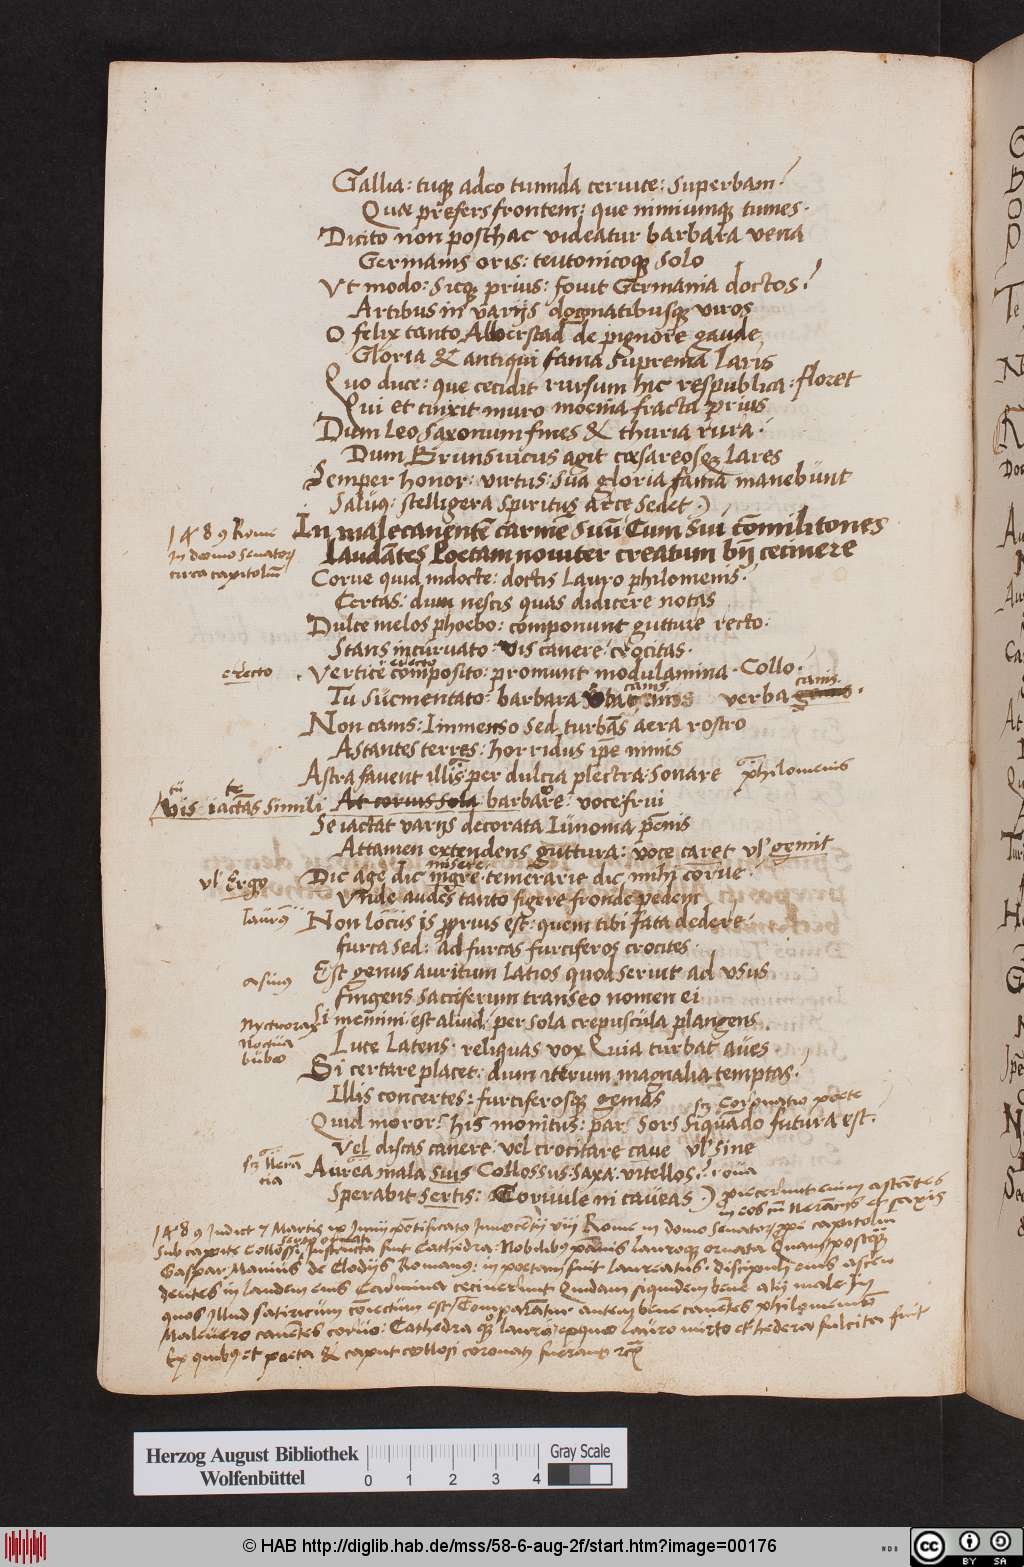 Gallia: tuq; adeo tumida ceruice: superbam?
Quae prefers frontem: que nimiumq; tumes.
Dicito non posthac videatur barbara vena
Germanis oris: teutonicoq; solo
Vt modo: sicq; prius: fouit Germania doctos?
Artibus in varijs dogmatibusq; viros
O felix tanto Alberstad de pignore gaude
Gloria & antiqui fama suprema Laris
Quo duce: que cecidit rursum hic respublica: floret
Qui et cinxit muro moenia fracta prius
Dum Leo saxonum fines & thuria rura?
Dum Brunsuicus agit caesareosq; Lares
Semper honor: virtus: sua gloria fama manebunt
Saluq: stelligera spiritus arce sedet
1489 Rome
in domo senatorꝫ
circa capitoliū
In malecanentē carmē suū Cum sui cōmilitones
laudātes Poetam nouiter creatum bñ cecinere
Corue quid indocte: doctis Lauro philomenis.
Certas: dum nescis quas didicere notas
Dulce melos phoebo: componunt gutture recto:
Stans incuruato: vis canere: crocitas.
erecto
erecto
Vertice composito: promunt modulamina. Collo.
canis
canis
Tu sucmentato: barbara verba
Non canis: Immenso sed turbās aera rostro
Astantes terres: horridus ipe nimis
Astra fauent illis: per dulcia plectra: sonare philomenis
cū te
Vis iactas simili At coruus sola barbare: voce: frui
Se iactat varijs decorata Iunonia pēnis
Attamen extendens guttura: voce caret vl' gemit
misere
vl' Ergo
Dic age dic nigre. temerarie dic mihi corue.
Vnde audes tanto figere fronde pedem
laurus
Non locus is prius est: quem tibi fata dedere.
furca sed: ad furcas furciferos crocites.
asinus
Est genus auritum Latios quod seruit ad vsus
fingens sacciferum transeo nomen ei
Nycticorax
Noctua
bubo
Si memini est aliud: per sola crepuscula plangens
Luce Latens. reliquas vox Quia turbat aues
Si certare placet: dum iterum magnalia temptas?
Illis concertes: furciferosq; gemas
scꝫ Coronatio poete
Quid moror? his monitus: par sors siquādo futura est.
Vel discas canere: vel crocitare caue vl' sine
Aurea mala suis Collossus: saxa: vitellos? oua
Sperabit sertis: Coruule ni caueas
1489 Indict 7 Martis ix Junij pōtificatus Innocentij viij Rome in domo senatorꝫ ppe capitolium
sub capite Collossi Instructa fuit Cathedra. Nobilibus pannis lauroq; ornata
Gaspar Manius de Clodijs Romanus: in poetam fuit laureatus. discipuli eius ascendentes in laudem eius Carmina cecinerunt Quidam siquidem bene alij male In
quos Illud satiricum cōiectum est: Comparātur autem bene canētes philomenis
Male vero canētes coruo: Cathedra lauro mirto et hedera fulcita fuit
Ex quibus et poeta & caput collosi coronati fuerant
Herzog August Bibliothek
Wolfenbüttel
0 1 2 3 4
Gray Scale
© HAB http://diglib.hab.de/mss/58-6-aug-2f/start.htm?image=00176
cc BY SA